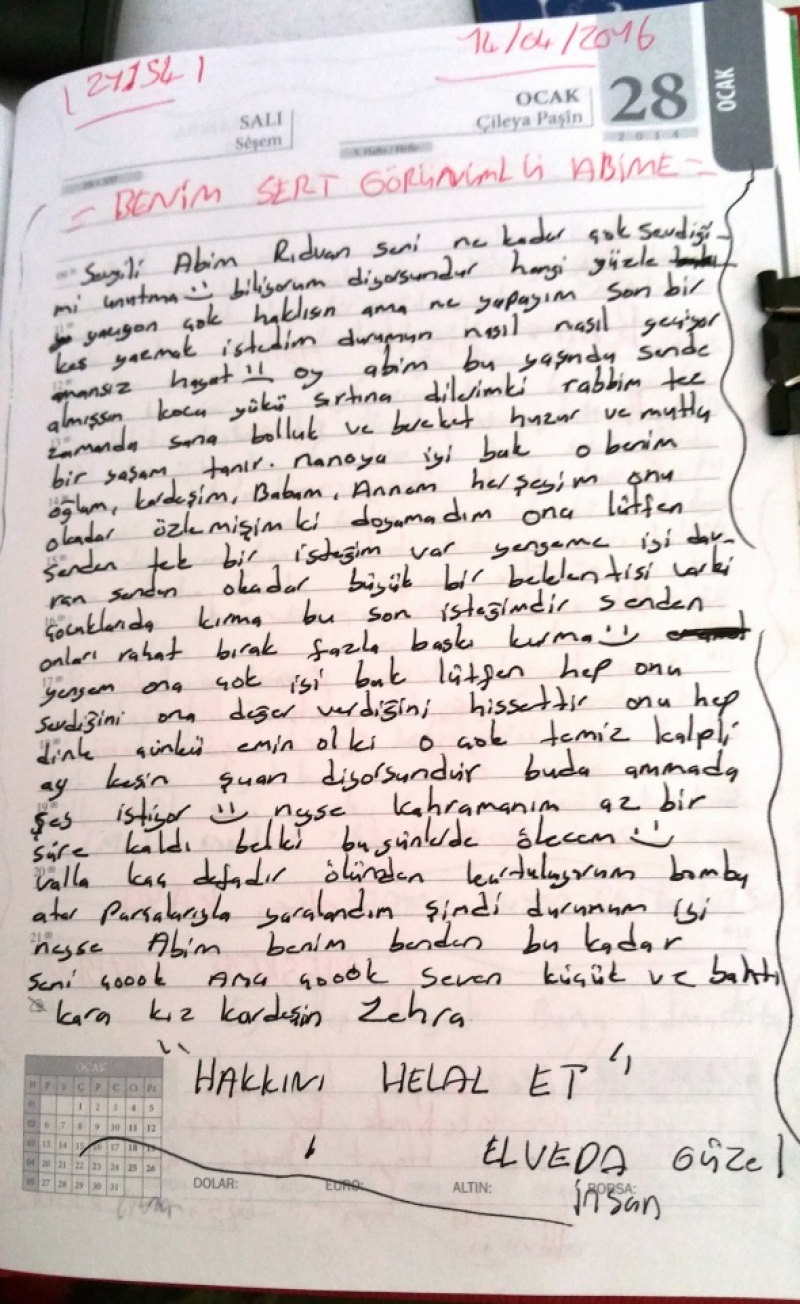 14/04/2016
SALI
Sêşem
OCAK
Çileya Paşîn
28
2014
OCAK
= BENİM SERT GÖRÜNİMLÜ ABİME =
Sevgili Abim Rıdvan seni ne kadar çok sevdiği-
mi unutma biliyorum diyorsundur hangi yüzle
yazıyon çok haklısın ama ne yapayım son bir
kaç yazmak istedim durumun nasıl nasıl geçiyor
amansız hayat oy abim bu yaşında sende
almışsın koca yükü sırtına dilerimki rabbim tez
zamanda sana bolluk ve bereket huzur ve mutlu
bir yaşam tanır. nanoya iyi bak o benim
oğlum, kardeşim, Babam, Annem herşeyim onu
okadar özlemişim ki doyamadım ona lütfen
senden tek bir isteğim var yengeme iyi dav-
ran senden okadar büyük bir beklentisi varki
çocuklarıda kırma bu son isteğimdir senden
onları rahat bırak fazla baskı kurma
yengem ona çok iyi bak lütfen hep onu
sevdiğini ona değer verdiğini hissettir onu hep
dinle çünkü emin olki o çok temiz kalpli
ay kesin şuan diyorsundur buda ammada
şey istiyor neyse kahramanım az bir
süre kaldı belki bugünlerde ölecem
valla kaç defadır ölümden kurtuluyorum bomba
atar Parçalarıyla yaralandım şimdi durumum iyi
neyse Abim benim benden bu kadar
seni çoook Ama çoook seven küçük ve bahtı
kara kız kardeşin Zehra
"HAKKINI HELAL ET"
ELVEDA Güzel
insan
OCAK
1 2 3 4 5
6 7 8 9 10 11 12
13 14 15 16 17 18 19
20 21 22 23 24 25 26
27 28 29 30 31
DOLAR: EURO: ALTIN: BORSA: